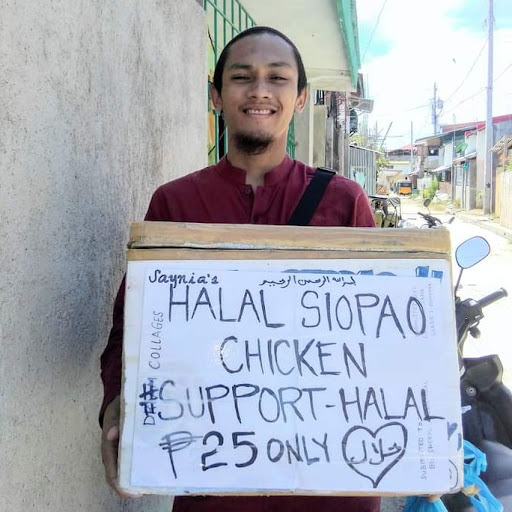 Saynia's
بسم الله الرحمن الرحيم
HALAL SIOPAO
CHICKEN
SUPPORT-HALAL
₱25 ONLY حلال
COLLAGES